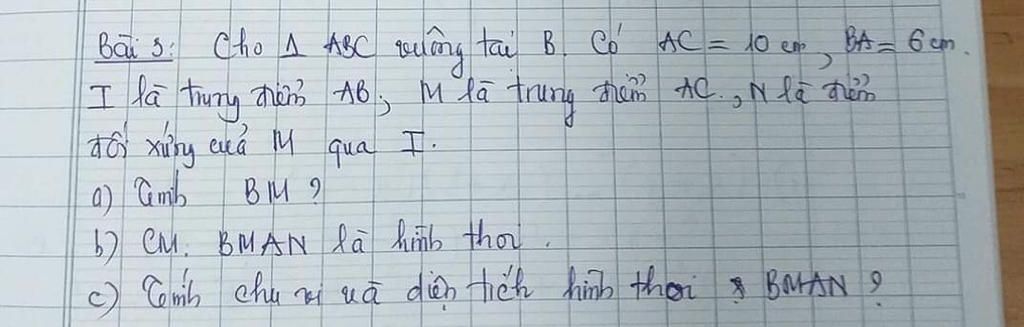 Bài 3: Cho Δ ABC vuông tại B. Có AC = 10 cm, BA = 6 cm.
I là trung điểm AB; M là trung điểm AC, N là điểm
đối xứng của M qua I.
a) Tính BM ?
b) CM. BMAN là hình thoi.
c) Tính chu vi và diện tích hình thoi BMAN ?